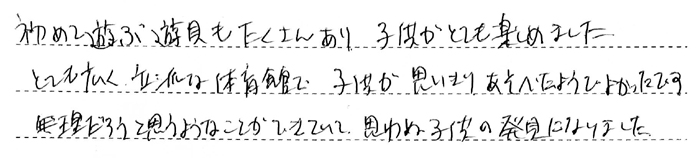 初めて遊ぶ遊具もたくさんあり 子供がとても楽しめました
とても広く 立派な体育館で 子供が思いきりあそべたようでよかったです
無理だろうと思うようなことができていて 思わぬ子供の発見になりました